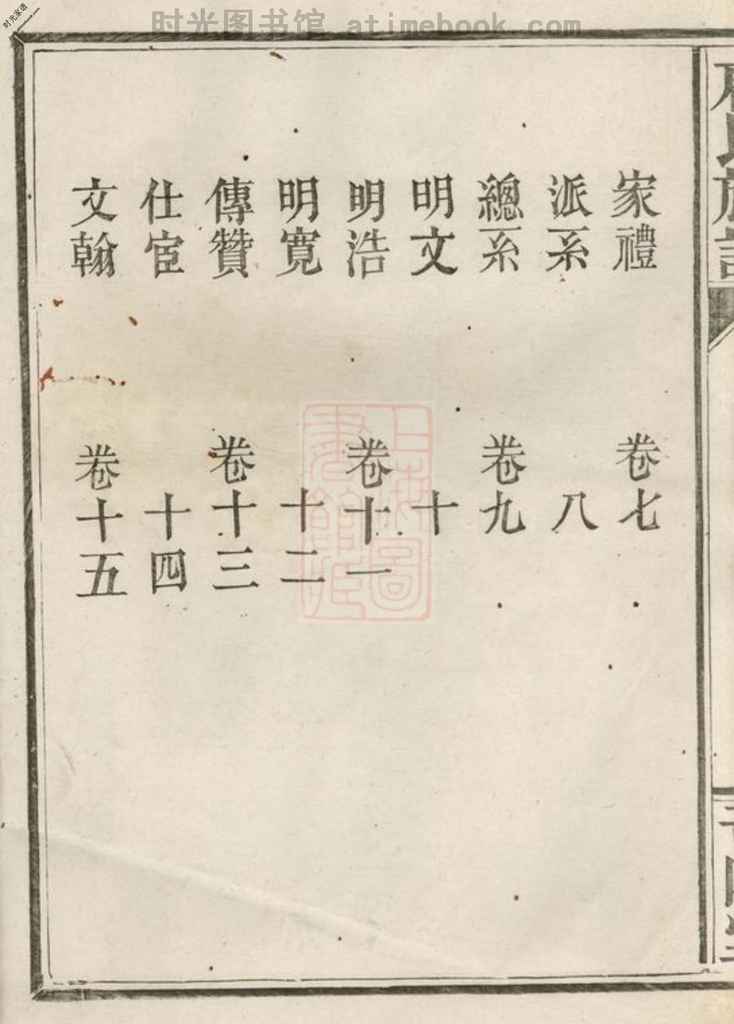 时光图书馆 atimebook.com
时光家谱
家禮 卷七
派系 八
總系 卷九
明文 十
明浩 卷十一
明寬 十二
傳贊 卷十三
仕宦 十四
文翰 卷十五